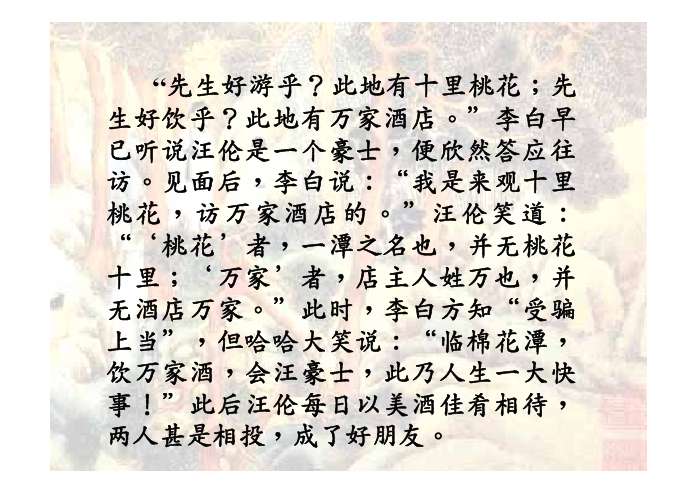 “先生好游乎？此地有十里桃花；先
生好饮乎？此地有万家酒店。”李白早
已听说汪伦是一个豪士，便欣然答应往
访。见面后，李白说：“我是来观十里
桃花，访万家酒店的。”汪伦笑道：
“‘桃花’者，一潭之名也，并无桃花
十里；‘万家’者，店主人姓万也，并
无酒店万家。”此时，李白方知“受骗
上当”，但哈哈大笑说：“临棉花潭，
饮万家酒，会汪豪士，此乃人生一大快
事！”此后汪伦每日以美酒佳肴相待，
两人甚是相投，成了好朋友。